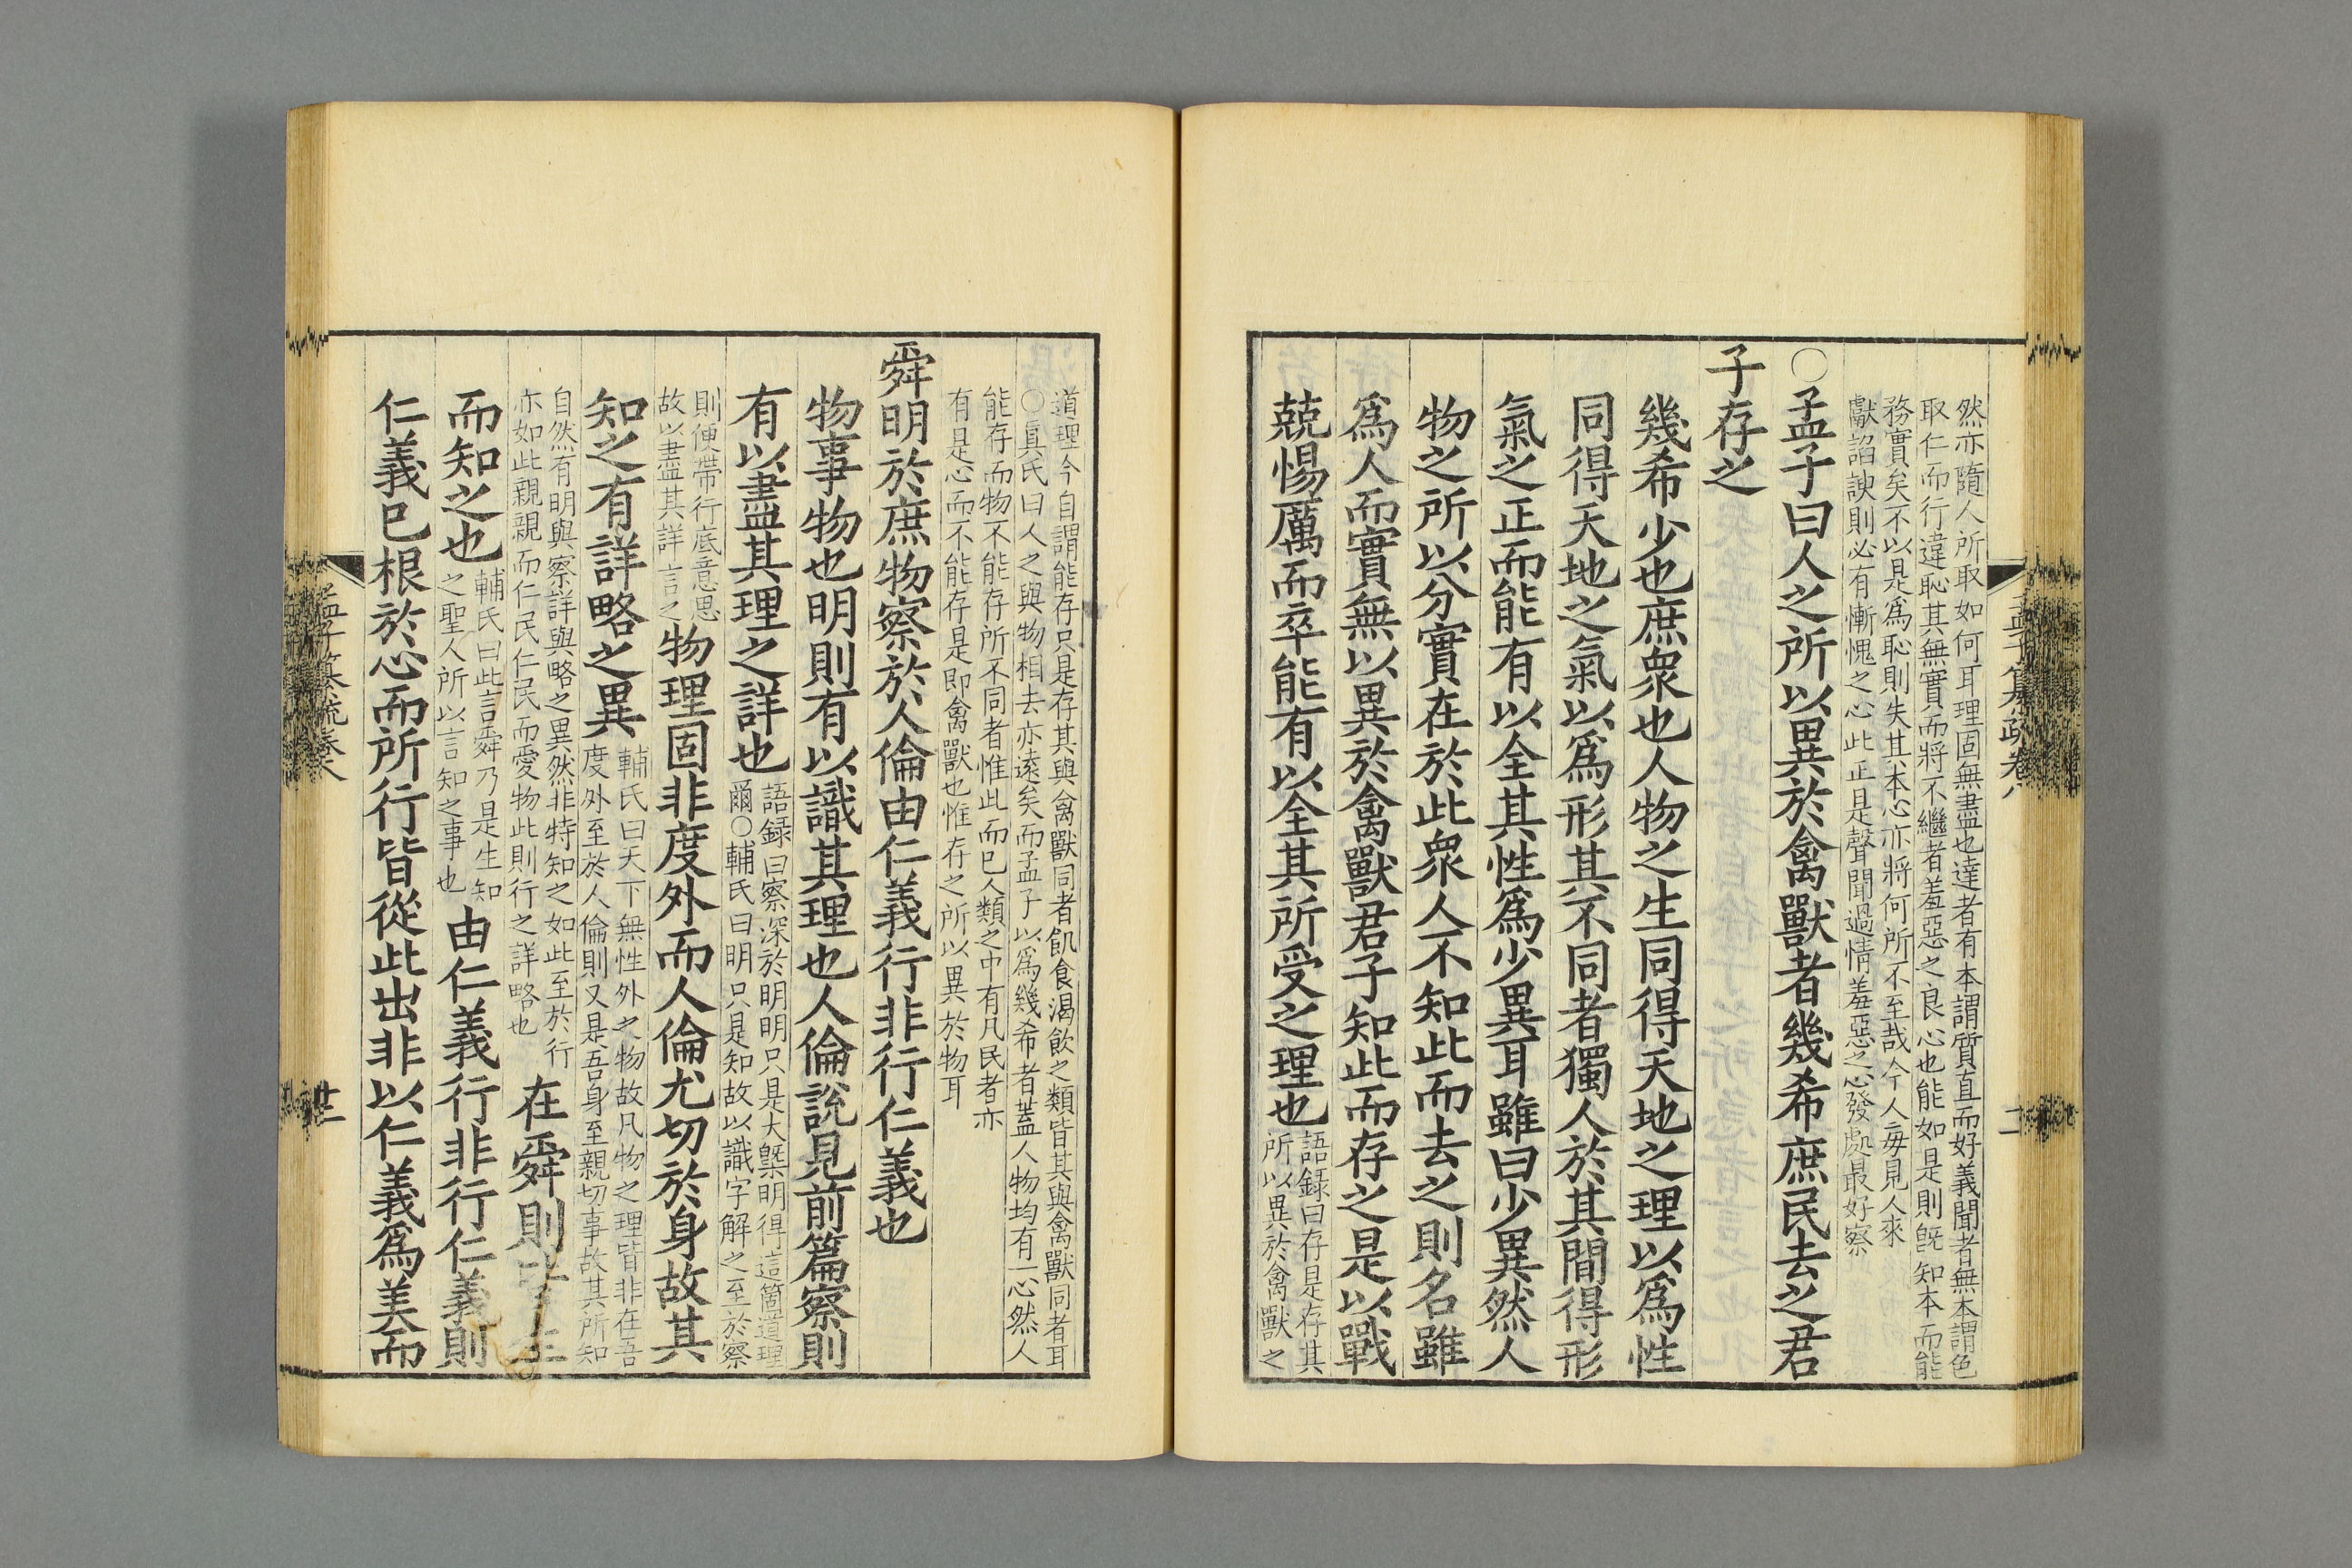 然亦隨人所取如何耳理固無盡也達者有本謂質直而好義聞者無本謂色
取仁而行違恥其無實而將不繼者羞惡之良心也能如是則旣知本而能
務實矣不以是爲恥則失其本心亦將何所不至哉今人每見人來
獻諂諛則必有慚愧之心此正是聲聞過情羞惡之心發處最好察
〇孟子曰人之所以異於禽獸者幾希庶民去之君
子存之
幾希少也庶衆也人物之生同得天地之理以爲性
同得天地之氣以爲形其不同者獨人於其間得形
氣之正而能有以全其性爲少異耳雖曰少異然人
物之所以分實在於此衆人不知此而去之則名雖
爲人而實無以異於禽獸君子知此而存之是以戰
兢惕厲而卒能有以全其所受之理也
語録曰存是存其
所以異於禽獸之
道理今自謂能存只是存其與禽獸同者飢食渴飲之類皆其與禽獸同者耳
〇眞氏曰人之與物相去亦遠矣而孟子以爲幾希者蓋人物均有一心然人
能存而物不能存所不同者惟此而已人類之中有凡民者亦
有是心而不能存是即禽獸也惟存之所以異於物耳
舜明於庶物察於人倫由仁義行非行仁義也
物事物也明則有以識其理也人倫說見前篇察則
有以盡其理之詳也
語録曰察深於明明只是大槩明得這箇道理
爾〇輔氏曰明只是知故以識字解之至於察
則便帶行底意思
故以盡其詳言之
物理固非度外而人倫尤切於身故其
知之有詳略之異
輔氏曰天下無性外之物故凡物之理皆非在吾
度外至於人倫則又是吾身至親切事故其所知
自然有明與察詳與略之異然非特知之如此至於行
亦如此親親而仁民仁民而愛物此則行之詳略也
在舜則
而知之也
輔氏曰此言舜乃是生知
之聖人所以言知之事也
由仁義行非行仁義則
仁義已根於心而所行皆從此出非以仁義爲美而
孟子纂疏卷八